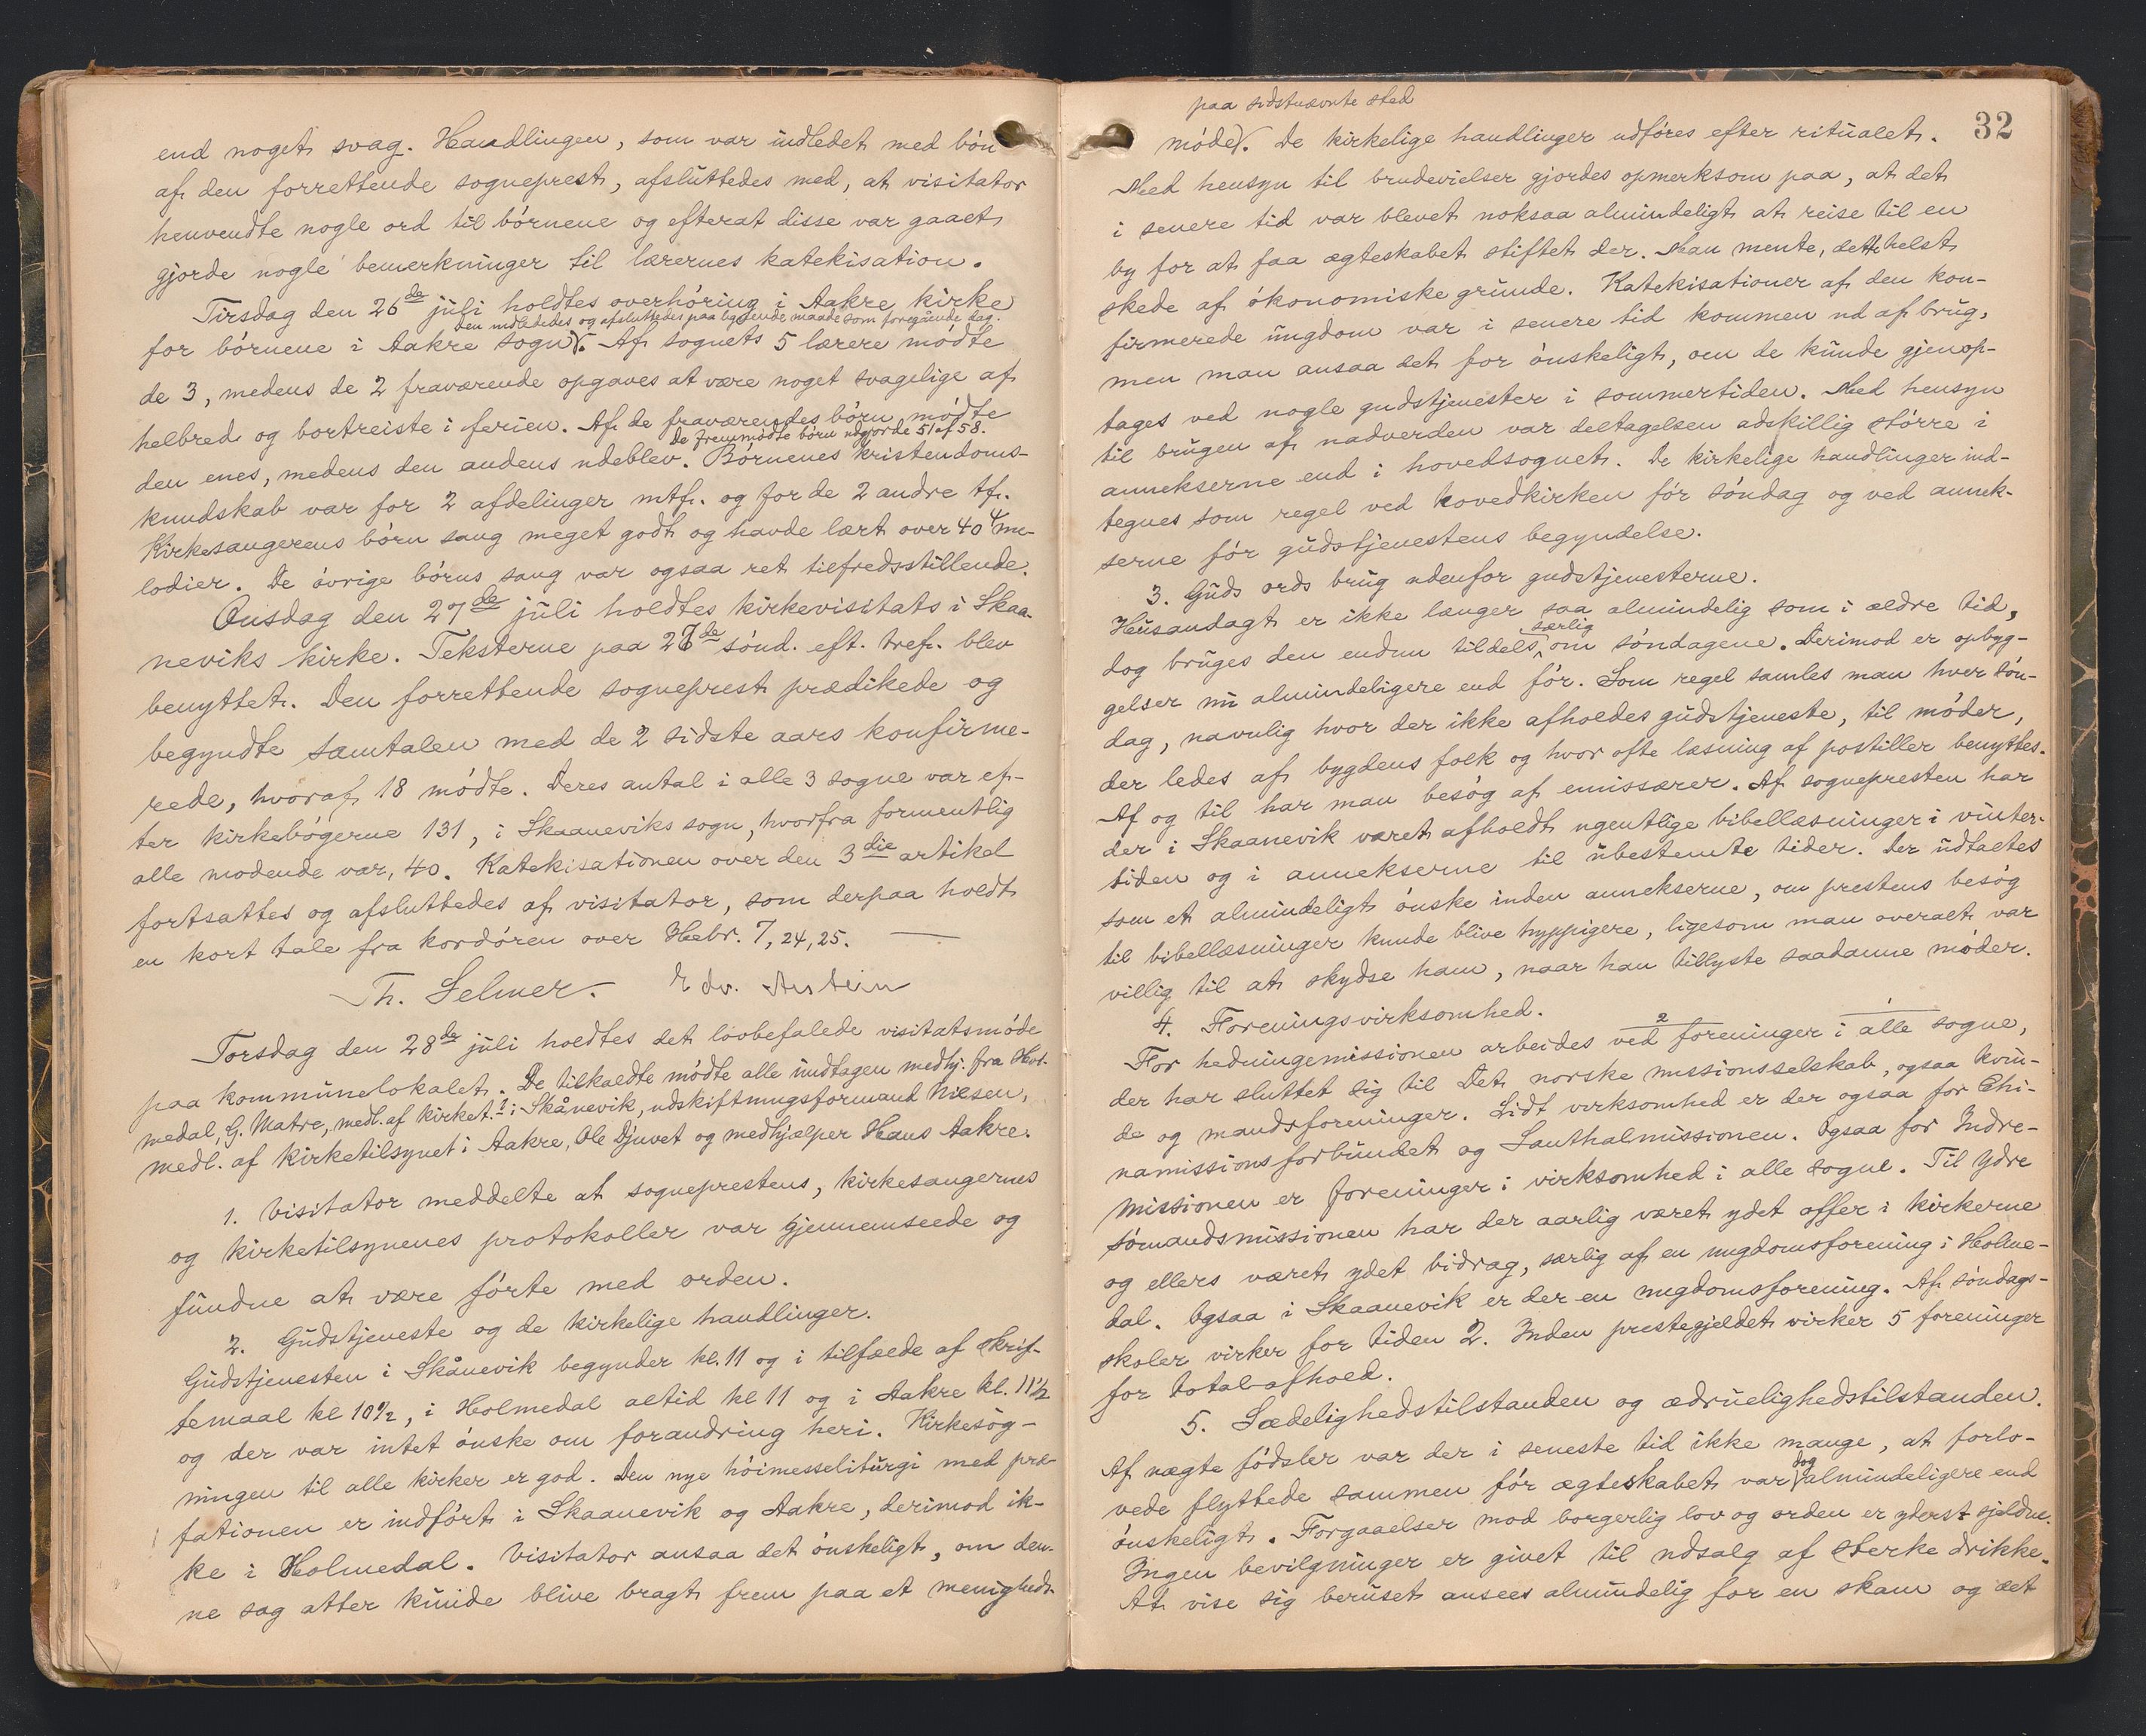 end noget svag. Handlingen, som var indledet med bön
af den forrettende sogneprest, afsluttedes med, at visitator
henvendte nogle ord til börnene og efterat disse var gaaet
gjorde nogle bemerkninger til lærernes katekisation.
Tirsdag den 26de juli holdtes overhöring i Aakre kirke
den indlededes og afsluttedes paa lignende maade som foregående dag.
for börnene i Aakre sogn. Af sognets 5 lærere mödte
de 3, medens de 2 fraværende opgaves at være noget svagelige af
helbred og bortreiste i ferien. Af de fraværendes börn mödte
de fremmödte börn udgjorde 51 af 58.
den enes, medens den andens udeblev. Börnenes kristendoms-
kundskab var for 2 afdelinger mtf. og for de 2 andre tf.
Kirkesangerens börn sang meget godt og havde lært over 40 me-
lodier. De övrige börns sang var ogsaa ret tilfredsstillende.
Onsdag den 27de juli holdtes kirkevisitats i Skaa-
neviks kirke. Teksterne paa 27de sönd. eft. tref. blev
benyttet. Den forrettende sogneprest prædikede og
begyndte samtalen med de 2 sidste aars konfirme-
rede, hvoraf 18 mödte. Deres antal i alle 3 sogne var ef-
ter kirkebögerne 131, i Skaaneviks sogn, hvorfra formentlig
alle mödende var, 40. Katekisationen over den 3die artikel
fortsattes og afsluttedes af visitator, som derpaa holdt
en kort tale fra kordören over Hebr. 7, 24, 25. —
Th. Selmer. Edv. Anstein
Torsdag den 28de juli holdtes det lovbefalede visitatsmöde
paa kommunelokalet. De tilkaldte mödte alle undtagen medhj. fra Hol-
medal, G. Matre, medl. af kirket. i Skånevik, udskiftningsformand Nilsen,
medl. af kirketilsynet i Aakre, Ole Djuvet og medhjælper Hans Aakre.
1. Visitator meddelte at sogneprestens, kirkesangernes
og kirketilsynenes protokoller var gjennemseede og
fundne at være förte med orden.
2. Gudstjeneste og de kirkelige handlinger.
Gudstjenesten i Skånevik begynder kl. 11 og i tilfælde af skrif-
temaal kl 10½, i Holmedal altid kl 11 og i Aakre kl. 11½
og der var intet önske om forandring heri. Kirkesög-
ningen til alle kirker er god. Den nye höimesseliturgi med præ-
fationen er indfört i Skaanevik og Aakre, derimod ik-
ke i Holmedal. Visitator ansaa det önskeligt, om den-
ne sag atter kunde blive bragt frem paa et menigheds-
32
paa sidstnævnte sted
möde. De kirkelige handlinger udföres efter ritualet.
Med hensyn til brudevielser gjordes opmerksom paa, at det
i senere tid var blevet noksaa almindeligt at reise til en
by for at faa ægteskabet stiftet der. Man mente, dette helst
skede af ökonomiske grunde. Katekisationer af den kon-
firmerede ungdom var i senere tid kommen ud af brug,
men man ansaa det for önskeligt, om de kunde gjenop-
tages ved nogle gudstjenester i sommertiden. Med hensyn
til brugen af nadverden var deltagelsen adskillig större i
annekserne end i hovedsognet. De kirkelige handlinger ind-
tegnes som regel ved hovedkirken för söndag og ved annek-
serne för gudstjenestens begyndelse.
3. Guds ords brug udenfor gudstjenesterne.
Husandagt er ikke længer saa almindelig som i ældre tid,
særlig
dog bruges den endnu tildels om söndagene. Derimod er opbyg-
gelser nu almindeligere end för. Som regel samles man hver sön-
dag, navnlig hvor der ikke afholdes gudstjeneste, til möder,
der ledes af bygdens folk og hvor ofte læsning af postiller benyttes.
Af og til har man besög af emissærer. Af sognepresten har
der i Skaanevik været afholdt ugentlige bibellæsninger i vinter-
tiden og i annekserne til ubestemte tider. Der udtaltes
som et almindeligt önske inden annekserne, om prestens besög
til bibellæsninger kunde blive hyppigere, ligesom man overalt var
villig til at skydse ham, naar han tillyste saadanne möder.
4. Foreningsvirksomhed.
For hedningemissionen arbeides ved foreninger i alle sogne,
der har sluttet sig til Det norske missionsselskab, ogsaa kvin-
de og mandsforeninger. Lidt virksomhed er der ogsaa for Chi-
namissionsforbundet og Santhalmissionen. Ogsaa for Indre-
missionen er foreninger i virksomhed i alle sogne. Til Ydre
sömandsmissionen har der aarlig været ydet offer i kirkerne
og ellers været ydet bidrag, særlig af en ungdomsforening i Holme-
dal. Ogsaa i Skaanevik er der en ungdomsforening. Af söndags-
skoler virker for tiden 2. Inden prestegjeldet virker 5 foreninger
for total-afhold.
5. Sædelighedstilstanden og ædruelighedstilstanden.
Af uægte födsler var der i seneste tid ikke mange, at forlo-
dog
vede flyttede sammen för ægteskabet var almindeligere end
önskeligt. Forgaaelser mod borgerlig lov og orden er yderst sjeldne.
Ingen bevilgninger er givet til udsalg af sterke drikke.
At vise sig beruset ansees almindelig for en skam og det